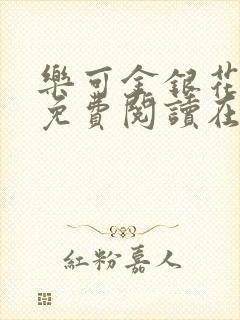 樂可金銀花
免費閱讀在
紅粉嘉人